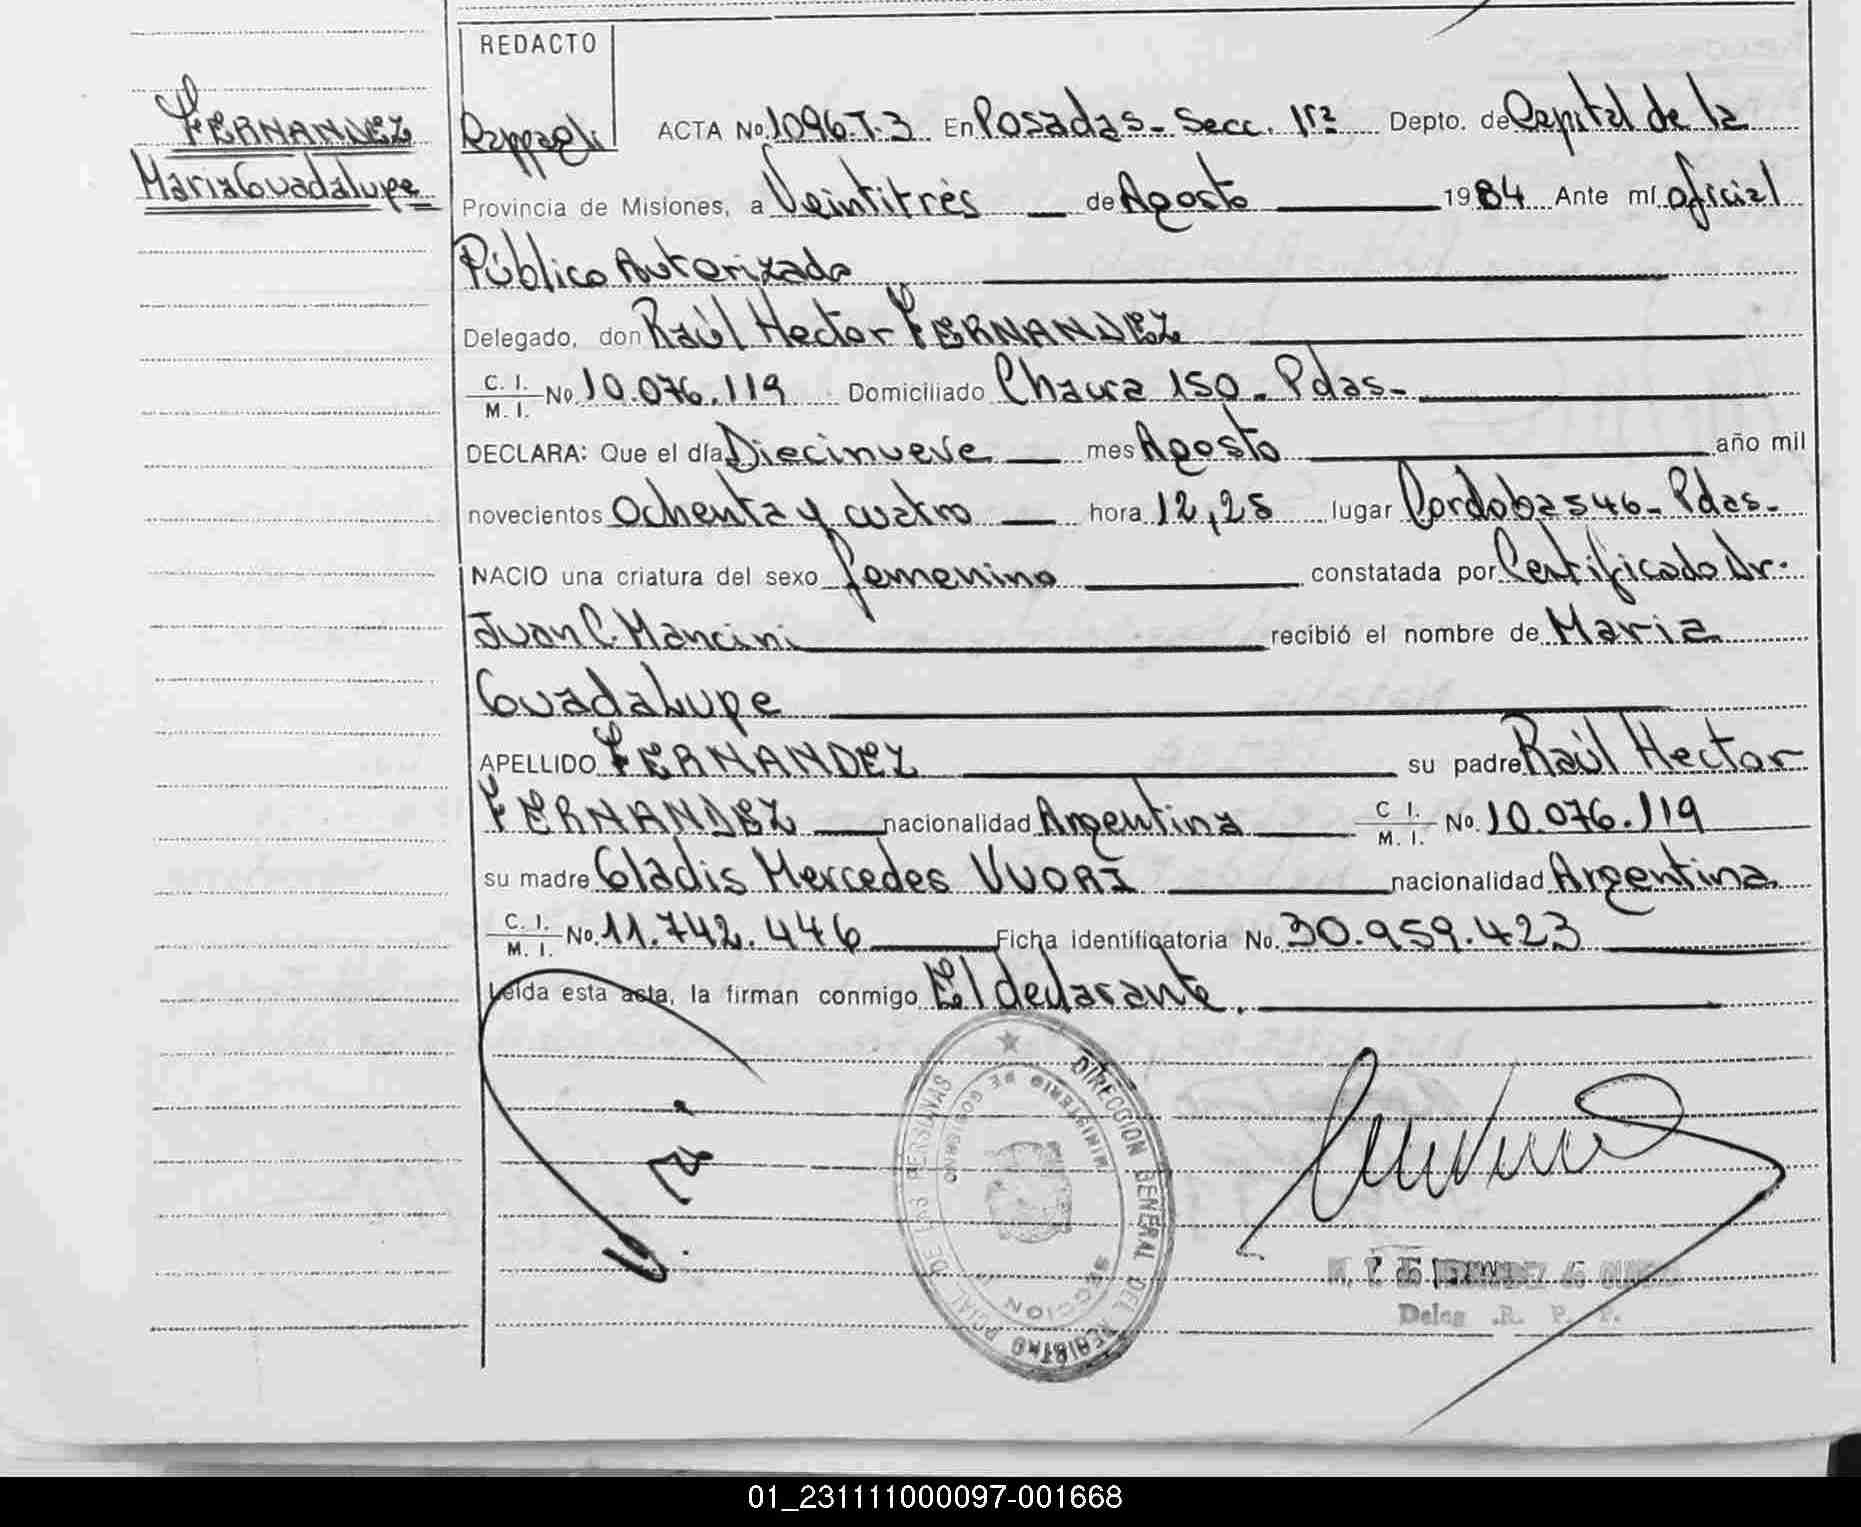 REDACTO
FERNANDEZ
Maria Guadalupe
ACTA No. 1096.T.3 En Posadas - Secc. 1ra Depto. de Capital de la
Provincia de Misiones, a Veintitrés de Agosto 1984 Ante mí oficial
Público Autorizado
Delegado, don Raúl Hector FERNANDEZ
C. I. M. I. No. 10.076.119 Domiciliado 150 - Pdas-
DECLARA: Que el día Diecinueve mes Agosto año mil
novecientos Ochenta y cuatro hora 12,25 lugar Cordoba 546 - Pdas-
NACIO una criatura del sexo femenino constatada por Certificado Dr.
Juan C. Mancini recibió el nombre de Maria
Guadalupe
APELLIDO FERNANDEZ su padre Raúl Hector
FERNANDEZ nacionalidad Argentina C I. M. I. No. 10.076.119
su madre Gladis Mercedes VUORI nacionalidad Argentina
C. I. M. I. No. 11.742.446 Ficha identificatoria No. 30.959.423
Leída esta acta, la firman conmigo El declarante.
DIRECCION GENERAL DEL REGISTRO PCIAL DE LAS PERSONAS
MINISTERIO DE GOBIERNO
SECCION
Deleg .R. P. P.
01_231111000097-001668